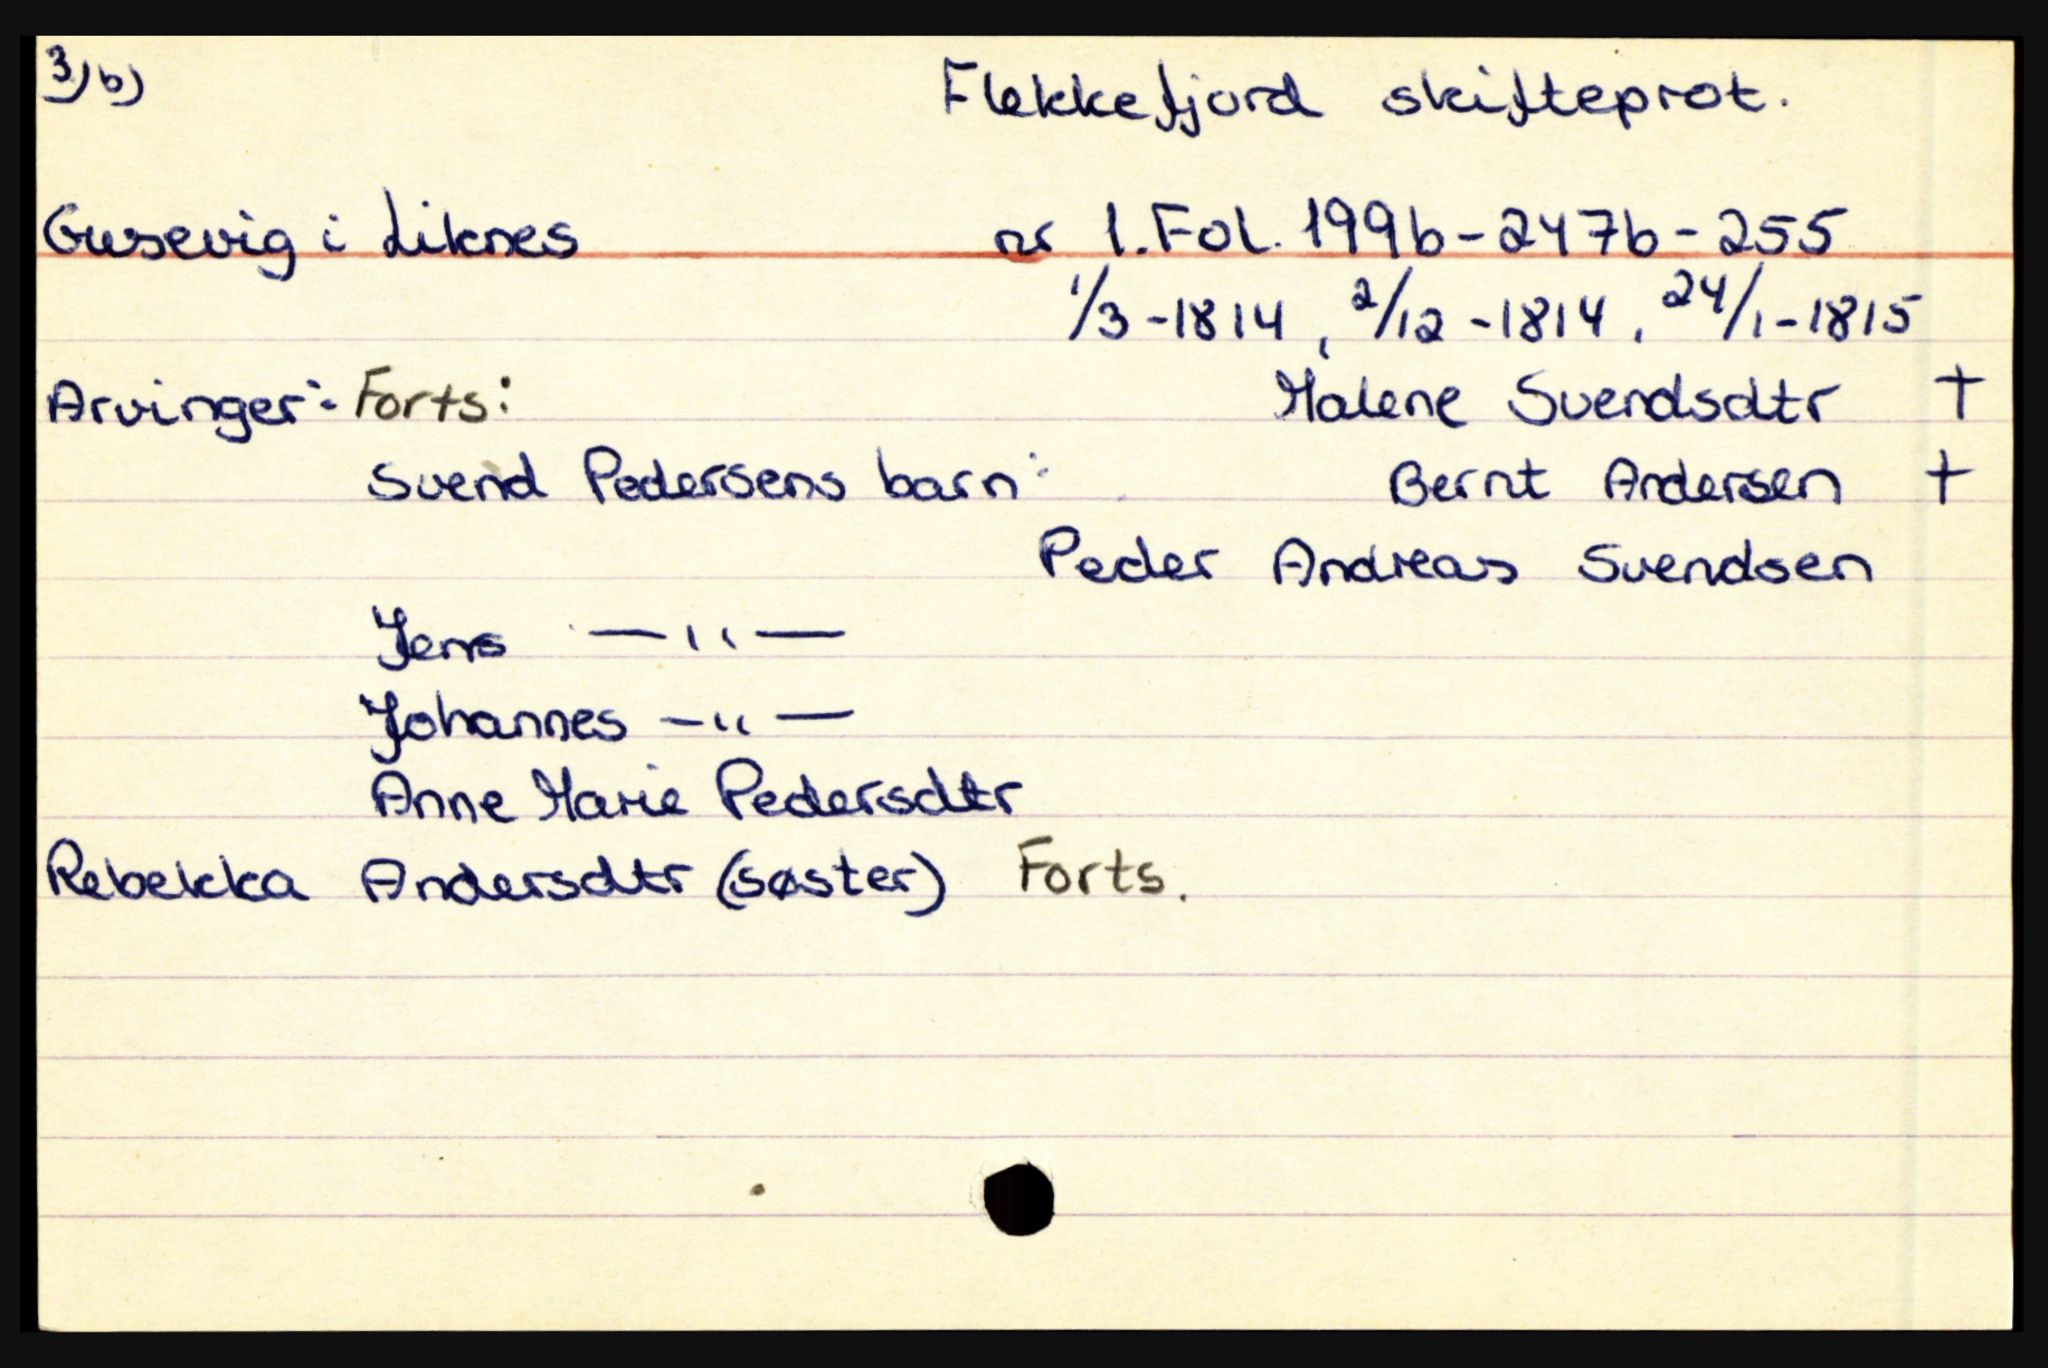 3)b) Flekkefjord skifteprot.
Gusevig i Liknes nr 1. Fol. 199b-247b-255
1/3-1814, 2/12-1814, 24/1-1815
Arvinger: Forts: Malene Svendsdtr †
Svend Pedersens barn: Bernt Andersen †
Peder Andreas Svendsen
Jens —"—
Johannes —"—
Anne Marie Pedersdtr
Rebekka Andersdtr (søster) Forts.